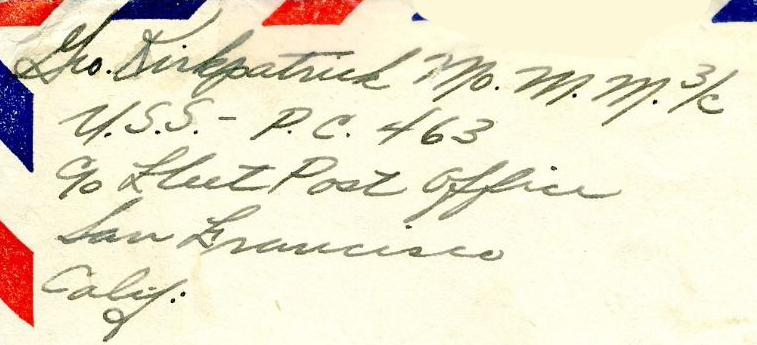 Geo. Kirkpatrick Mo. M. M. 3/c
U.S.S. - P.C. 463
c/o Fleet Post Office
San Francisco
Calif.